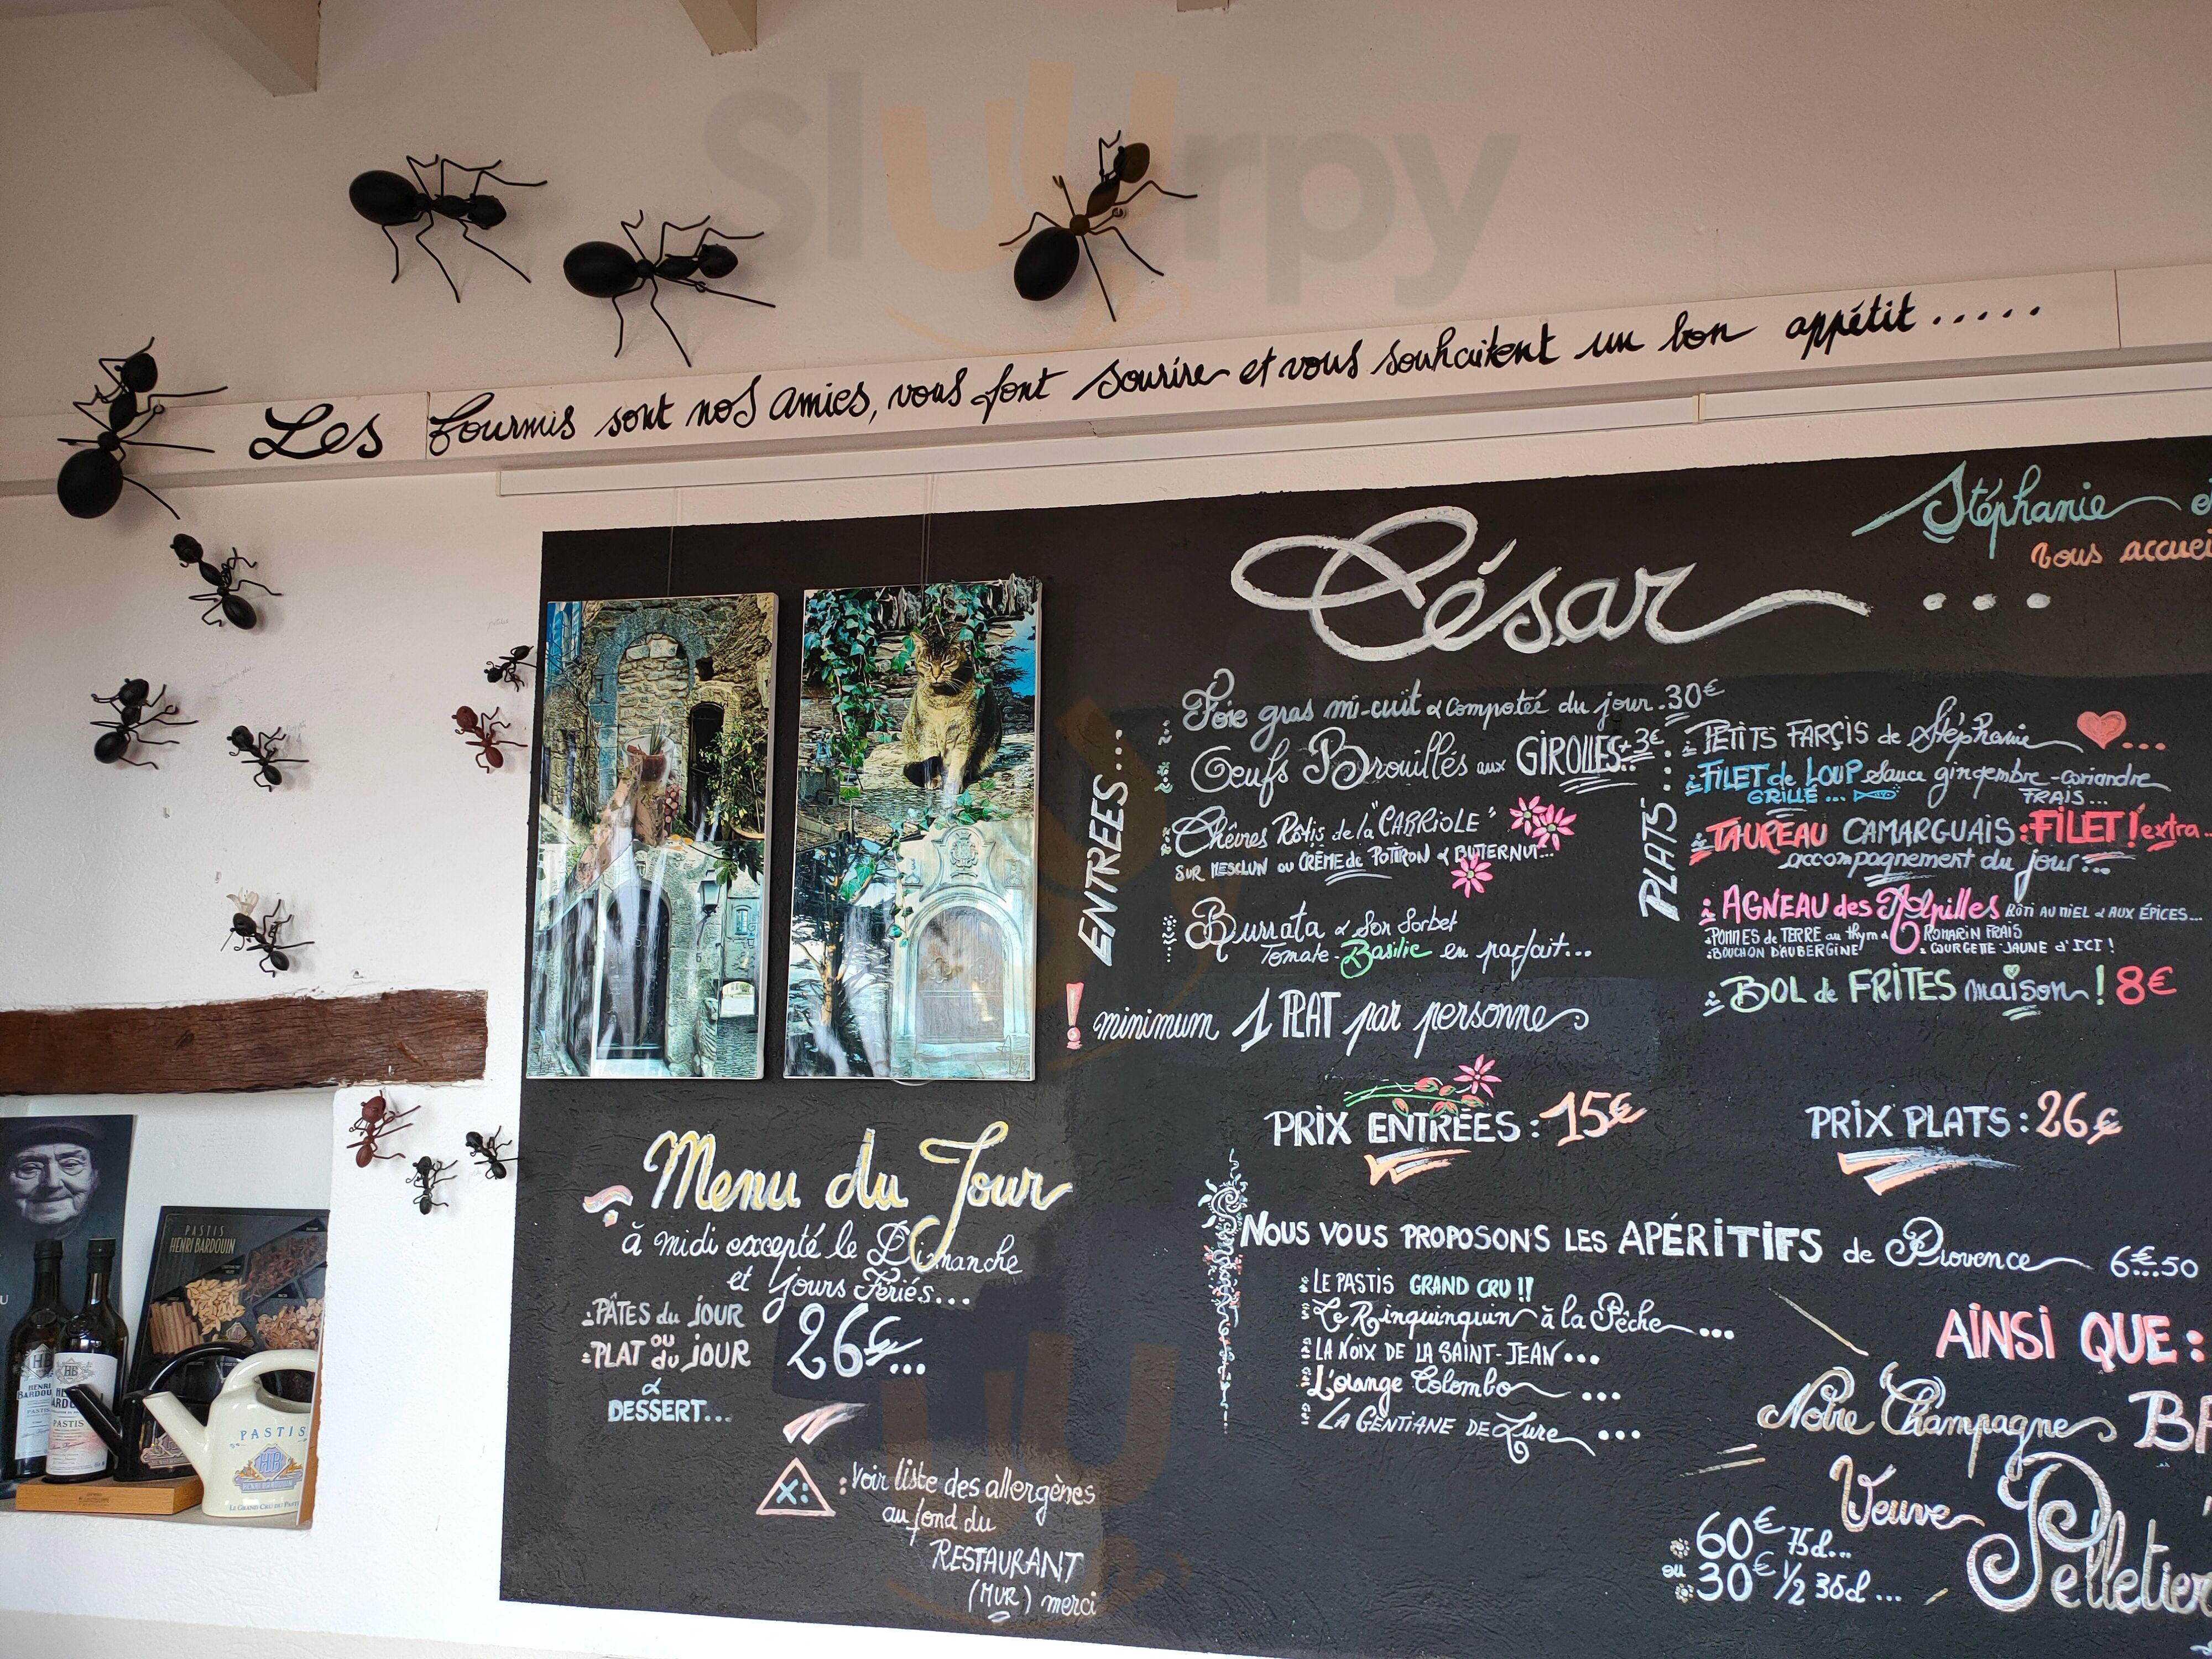 Sluurpy
Les fourmis sont nos amies, vous font sourire et vous souhaitent un bon appétit.....
Stéphanie
vous accuei
César...
ENTREES...
Foie gras mi-cuit & compoteé du jour.30€
Oeufs Brouillés aux GIROLLES+3€..
Chêvres Rôtis de la "CARRIOLE"
SUR MESCLUN ou CRÈME de POTIRON & BUTERNUT...
Burrata & Son Sorbet
Tomate-Basilic en parfait...
! minimum 1 PLAT par personne
PRIX ENTRÉES: 15€
PLATS:...
PETITS FARÇIS de Stéphanie ...
FILET de LOUP Sauce gingembre-coriandre
GRILLÉ... FRAIS...
TAUREAU CAMARGUAIS: FILET! extra..
accompagnement du jour...
AGNEAU des Alpilles RÔTI AU MIEL & AUX ÉPICES...
POMMES de TERRE au thym & ROMARIN FRAIS
BOUCHON D'AUBERGINE COURGETTE JAUNE d'ICI!
BOL de FRITES maison! 8€
PRIX PLATS: 26€
Menu du Jour
à midi excepté le Dimanche
et jours Fériés...
PÂTES du JOUR
ou
PLAT du JOUR
&
DESSERT...
26€...
X: : Voir liste des allergènes
au fond du
RESTAURANT
(MUR) merci
NOUS VOUS PROPOSONS LES APÉRITIFS de Provence 6€..50
LE PASTIS GRAND CRU!!
Le Rinquinquin à la Pêche...
LA NOIX DE LA SAINT-JEAN...
L'orange Colombo ...
LA GENTIANE DE Lure ...
AINSI QUE:
Notre Champagne
Veuve Pelletier
60€ 75d...
ou
30€ 1/2 35d...
PASTIS
HENRI BARDOUIN
HB
HENRI
BARDOUIN
PASTIS
PASTIS
HB
LE GRAND CRU DU PASTIS